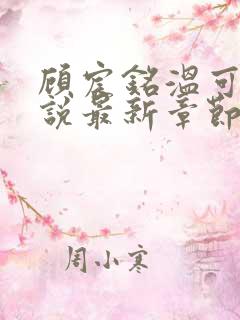 顾宸銘温可
說最新章節
周小寒